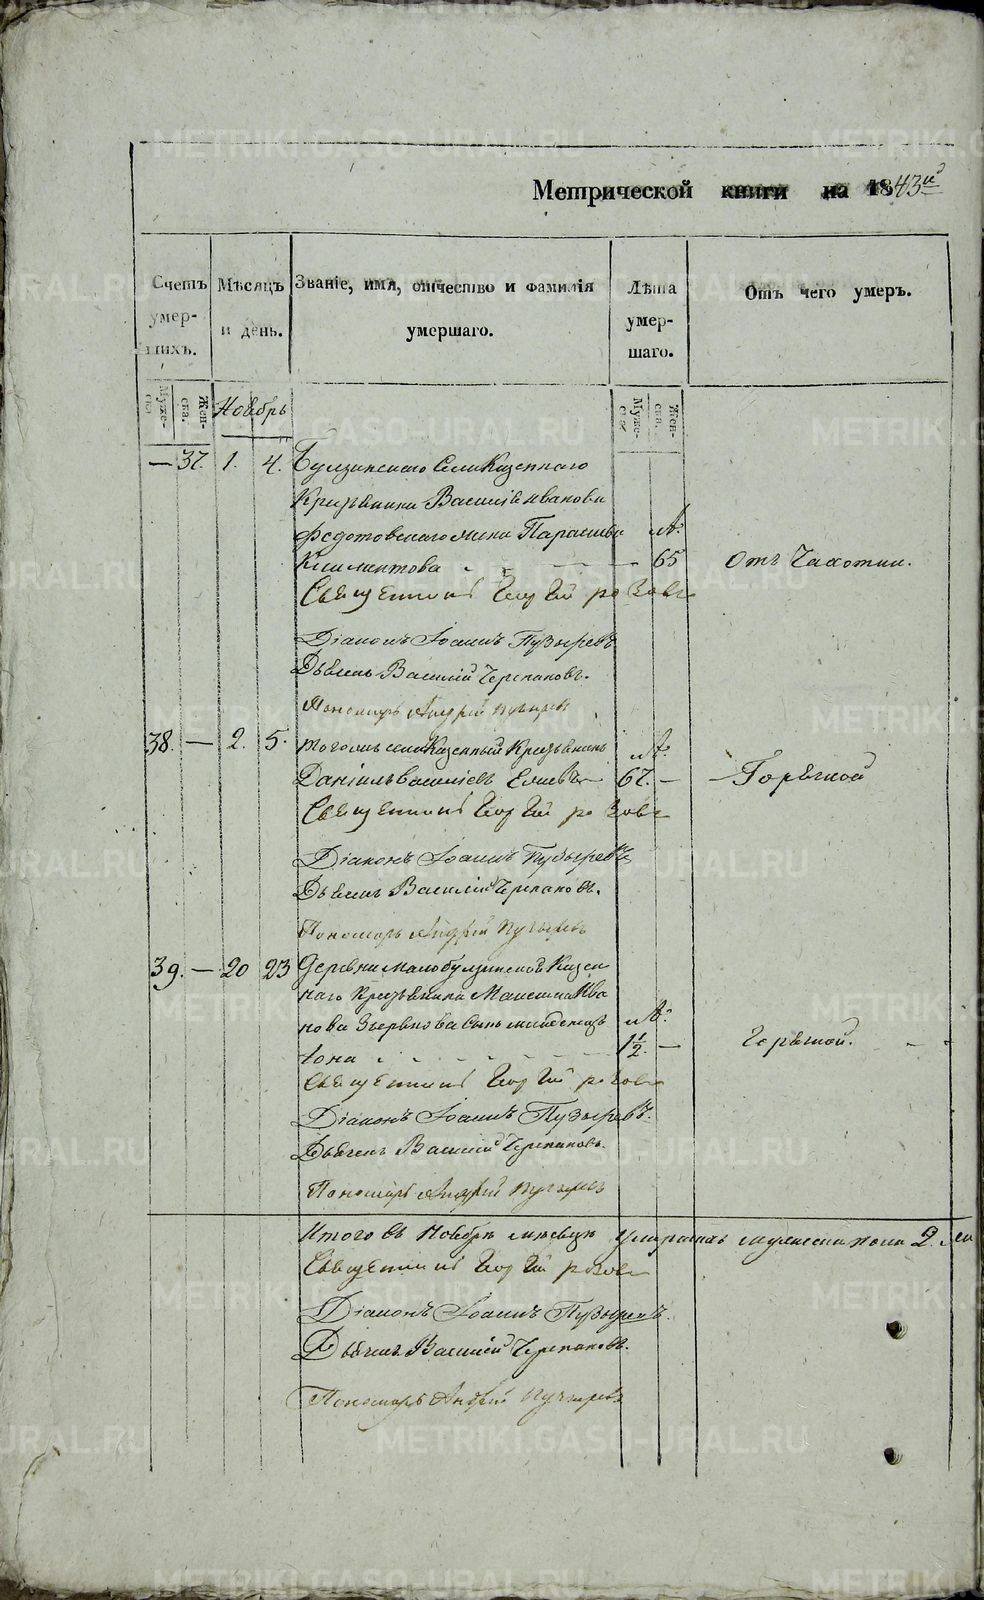 METRIKI.GASO-URAL.RU
Метрической книги на 1843й
Счетъ умер-шихъ.
Мѣсяцъ и день.
Званіе, имя, отчество и фамилія умершаго.
Лѣта умер-шаго.
Отъ чего умеръ.
Муже-ска
Жен-ска.
Ноябрь
Муже-ска
Жен-ска.
— 37. 1. 4. Булзинскаго Села Казеннаго
Крестьянина Василія Иванова
Федотовскаго жена Параскева Лѣ:
Климантова — 65 Отъ Чахотки.
Священникъ Георгій
Діаконъ Іоаннъ Пузыревъ
Дьячекъ Василій Черепановъ.
Пономарь Андрей Пузыревъ
38. — 2. 5. Тогожъ села Казенный Крестьянинъ Лѣ:
Даніилъ Василіевъ 67. — Горячкой
Священникъ Георгій
Діаконъ Іоаннъ Пузыревъ
Дьячекъ Василій Черепановъ.
Пономарь Андрей Пузыревъ
39. — 20 23 Деревни Малобулзинской Казен
наго Крестьянина Максима Ива
нова Зверькова сынъ младенецъ Лѣ:
Іона 1 1/2. — Горячкой.
Священникъ Георгій
Діаконъ Іоаннъ Пузыревъ.
Дьячекъ Василій Черепановъ.
Пономарь Андрей Пузыревъ
Итого въ Ноябрѣ мѣсяцѣ умершихъ мужеска пола 2.
Священникъ Георгій
Діаконъ Іоаннъ Пузыревъ.
Дьячекъ Василій Черепановъ.
Пономарь Андрей Пузыревъ